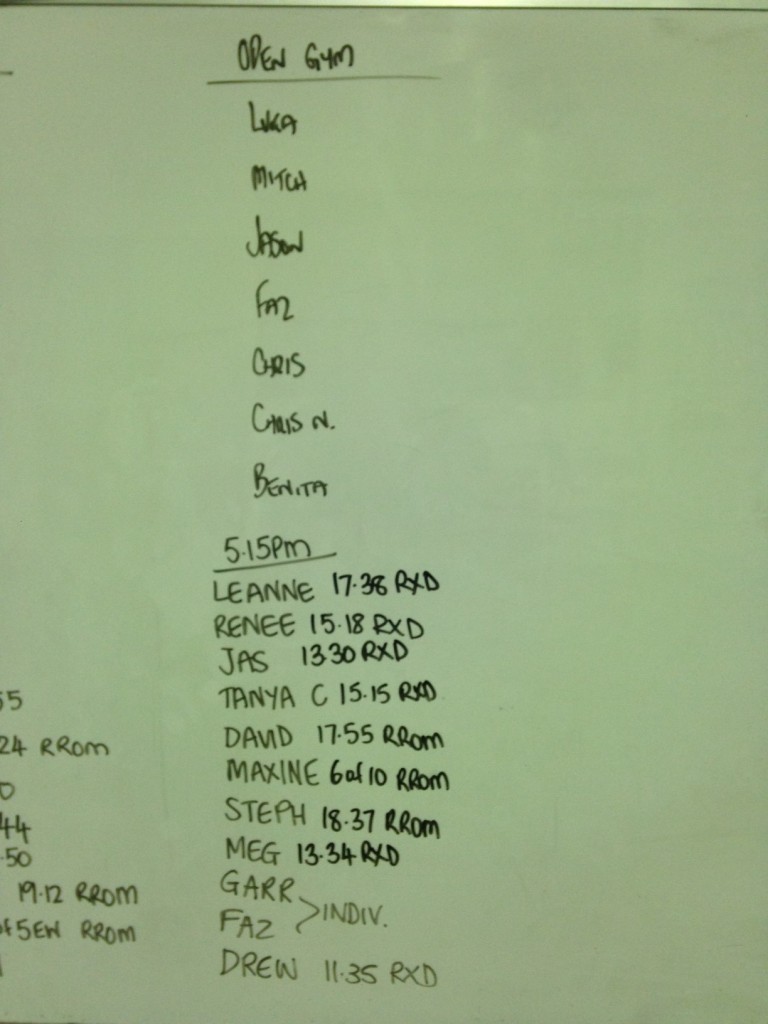 OPEN GYM
LUKA
MITCH
JASON
FAZ
CHRIS
CHRIS N.
BENITA
5.15PM
LEANNE 17.38 RXD
RENEE 15.18 RXD
JAS 13.30 RXD
TANYA C 15.15 RXD
55
DAVID 17.55 RROM
24 RROM
MAXINE 6 of 10 RROM
0
STEPH 18.37 RROM
44
MEG 13.34 RXD
.50
GARR
19.12 RROM
FAZ > INDIV.
RROM
DREW 11.35 RXD